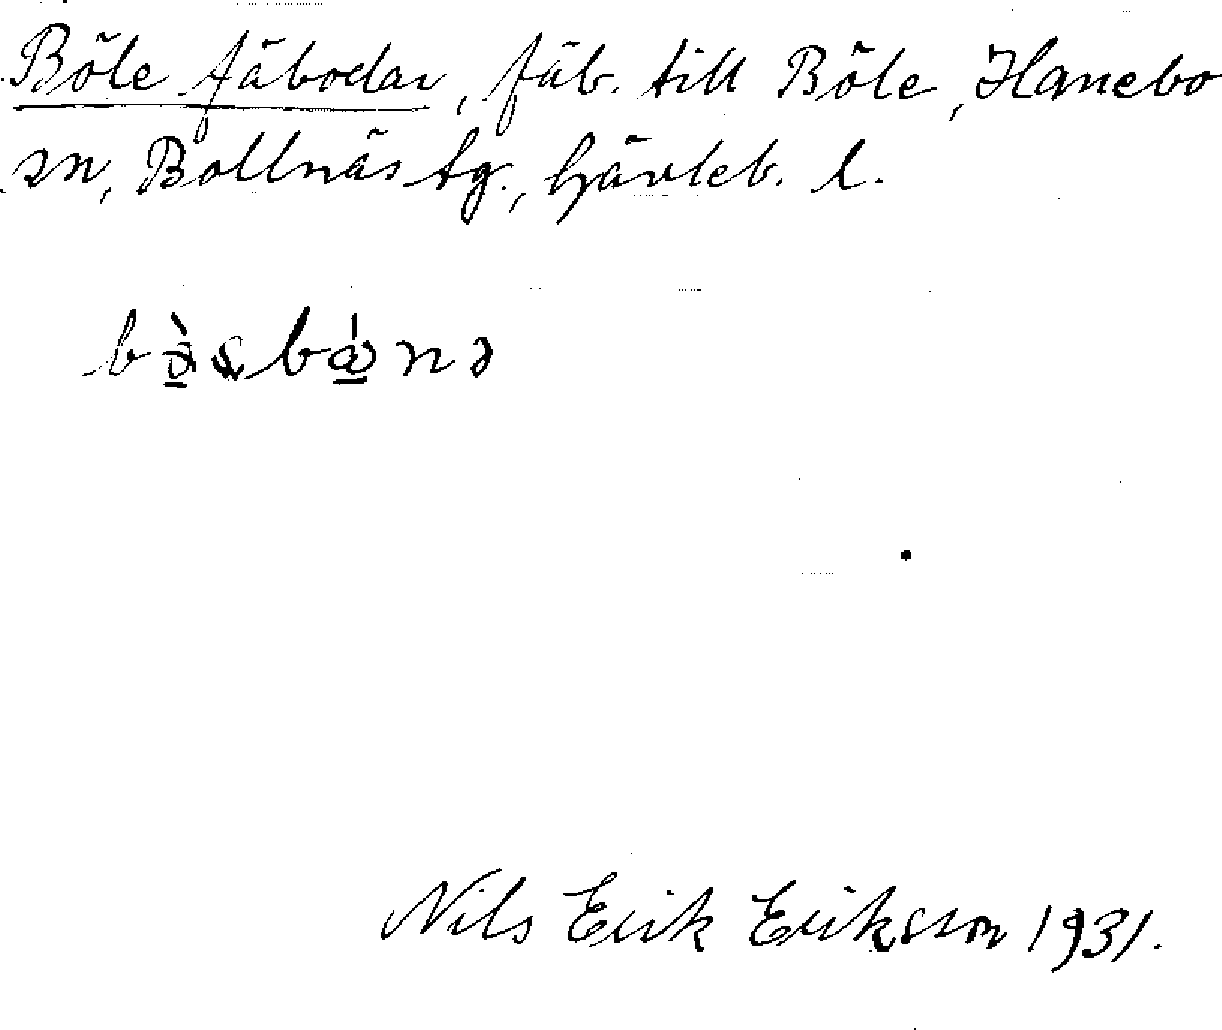 Böle fäbodar, fäb. till Böle, Hanebo
sn, Bollnäs tg., Gävleb. l.
Nils Erik Eriksson 1931.